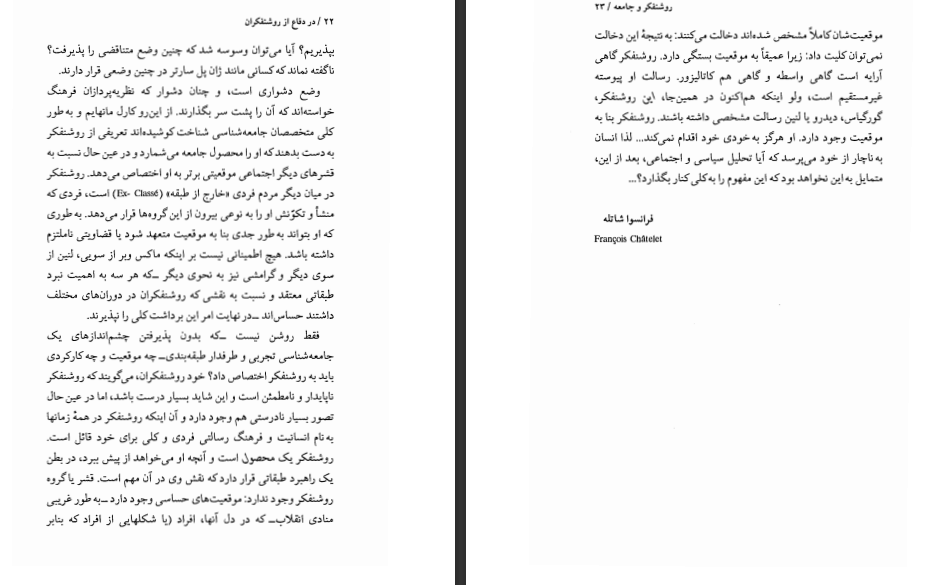 ۲۲ / در دفاع از روشنفکران
بپذیریم؟ آیا می‌توان وسوسه شد که چنین وضع متناقضی را پذیرفت؟
ناگفته نماند که کسانی مانند ژان پل سارتر در چنین وضعی قرار دارند.
وضع دشواری است، و چنان دشوار که نظریه‌پردازان فرهنگ
خواسته‌اند که آن را پشت سر بگذارند. از این‌رو کارل مانهایم و به طور
کلی متخصصان جامعه‌شناسی شناخت کوشیده‌اند تعریفی از روشنفکر
به دست بدهند که او را محصول جامعه می‌شمارد و در عین حال نسبت به
قشرهای دیگر اجتماعی موقعیتی برتر به او اختصاص می‌دهد. روشنفکر
در میان دیگر مردم فردی «خارج از طبقه» (Ex- Classé) است، فردی که
منشأ و تکوّنش او را به نوعی بیرون از این گروه‌ها قرار می‌دهد. به طوری
که او بتواند به طور جدی بنا به موقعیت متعهد شود یا قضاوتی ناملتزم
داشته باشد. هیچ اطمینانی نیست بر اینکه ماکس وبر از سویی، لنین از
سوی دیگر و گرامشی نیز به نحوی دیگر ــ‌که هر سه به اهمیت نبرد
طبقاتی معتقد و نسبت به نقشی که روشنفکران در دوران‌های مختلف
داشتند حساس‌اند ــ‌در نهایت امر این برداشت کلی را نپذیرند.
فقط روشن نیست ــ‌که بدون پذیرفتن چشم‌اندازهای یک
جامعه‌شناسی تجربی و طرفدار طبقه‌بندی‌ــ چه موقعیت و چه کارکردی
باید به روشنفکر اختصاص داد؟ خود روشنفکران، می‌گویند که روشنفکر
ناپایدار و نامطمئن است و این شاید بسیار درست باشد، اما در عین حال
تصور بسیار نادرستی هم وجود دارد و آن اینکه روشنفکر در همهٔ زمانها
به نام انسانیت و فرهنگ رسالتی فردی و کلی برای خود قائل است.
روشنفکر یک محصول است و آنچه او می‌خواهد از پیش ببرد، در بطن
یک راهبرد طبقاتی قرار دارد که نقش وی در آن مهم است. قشر یا گروه
روشنفکر وجود ندارد: موقعیت‌های حساسی وجود دارد ــ‌به طور غریبی
منادی انقلاب‌ــ که در دل آنها، افراد (یا شکلهایی از افراد که بنابر
روشنفکر و جامعه / ۲۳
موقعیت‌شان کاملاً مشخص شده‌اند دخالت می‌کنند: به نتیجهٔ این دخالت
نمی‌توان کلیت داد: زیرا عمیقاً به موقعیت بستگی دارد. روشنفکر گاهی
آرایه است گاهی واسطه و گاهی هم کاتالیزور. رسالت او پیوسته
غیرمستقیم است، ولو اینکه هم‌اکنون در همین‌جا، این روشنفکر،
گورگیاس، دیدرو یا لنین رسالت مشخصی داشته باشند. روشنفکر بنا به
موقعیت وجود دارد. او هرگز به خودی خود اقدام نمی‌کند... لذا انسان
به ناچار از خود می‌پرسد که آیا تحلیل سیاسی و اجتماعی، بعد از این،
متمایل به این نخواهد بود که این مفهوم را به کلی کنار بگذارد؟...
فرانسوا شاتله
François Châtelet